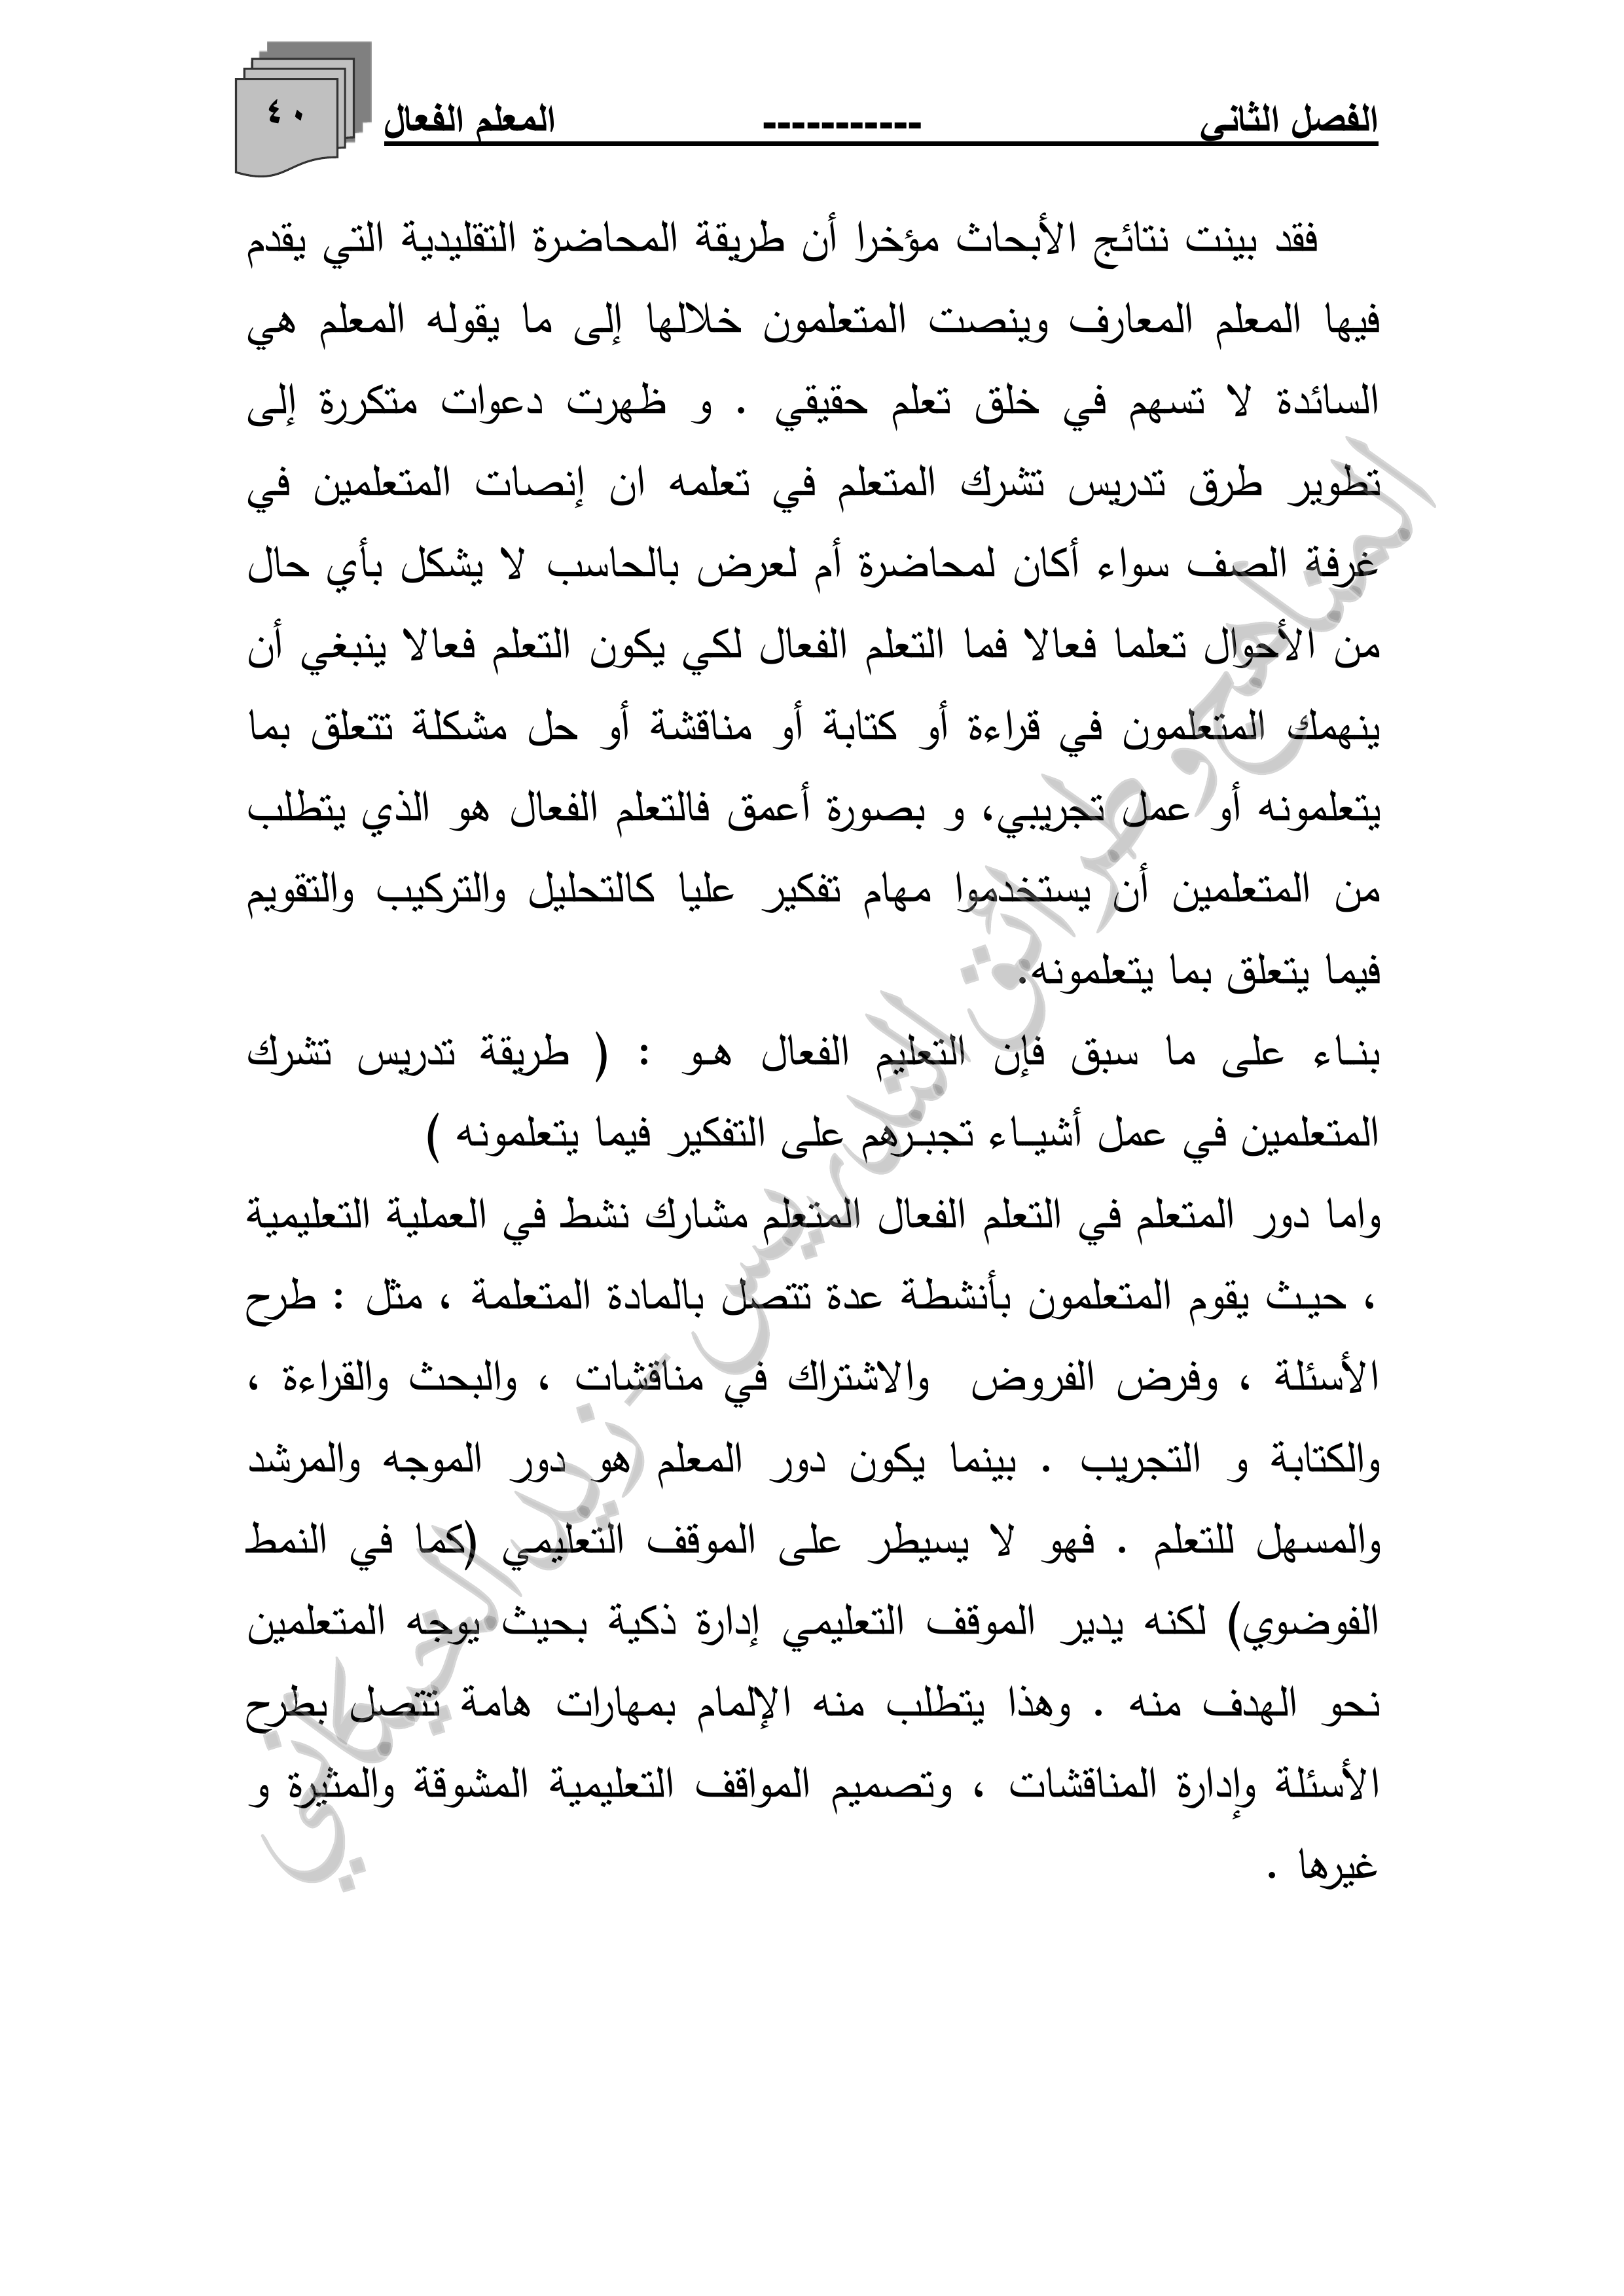 الفصل الثاني ----------- المعلم الفعال ٤٠
فقد بينت نتائج الأبحاث مؤخرا أن طريقة المحاضرة التقليدية التي يقدم
فيها المعلم المعارف وينصت المتعلمون خلالها إلى ما يقوله المعلم هي
السائدة لا تسهم في خلق تعلم حقيقي . و ظهرت دعوات متكررة إلى
تطوير طرق تدريس تشرك المتعلم في تعلمه ان إنصات المتعلمين في
غرفة الصف سواء أكان لمحاضرة أم لعرض بالحاسب لا يشكل بأي حال
من الأحوال تعلما فعالا فما التعلم الفعال لكي يكون التعلم فعالا ينبغي أن
ينهمك المتعلمون في قراءة أو كتابة أو مناقشة أو حل مشكلة تتعلق بما
يتعلمونه أو عمل تجريبي، و بصورة أعمق فالتعلم الفعال هو الذي يتطلب
من المتعلمين أن يستخدموا مهام تفكير عليا كالتحليل والتركيب والتقويم
فيما يتعلق بما يتعلمونه.
بنـاء على ما سبق فإن التعليم الفعال هـو : ( طريقة تدريس تشرك
المتعلمين في عمل أشيـاء تجبـرهم على التفكير فيما يتعلمونه )
واما دور المتعلم في التعلم الفعال المتعلم مشارك نشط في العملية التعليمية
، حيث يقوم المتعلمون بأنشطة عدة تتصل بالمادة المتعلمة ، مثل : طرح
الأسئلة ، وفرض الفروض والاشتراك في مناقشات ، والبحث والقراءة ،
والكتابة و التجريب . بينما يكون دور المعلم هو دور الموجه والمرشد
والمسهل للتعلم . فهو لا يسيطر على الموقف التعليمي (كما في النمط
الفوضوي) لكنه يدير الموقف التعليمي إدارة ذكية بحيث يوجه المتعلمين
نحو الهدف منه . وهذا يتطلب منه الإلمام بمهارات هامة تتصل بطرح
الأسئلة وإدارة المناقشات ، وتصميم المواقف التعليمية المشوقة والمثيرة و
غيرها .
المناهج وطرائق التدريس - زيد الخيكاني